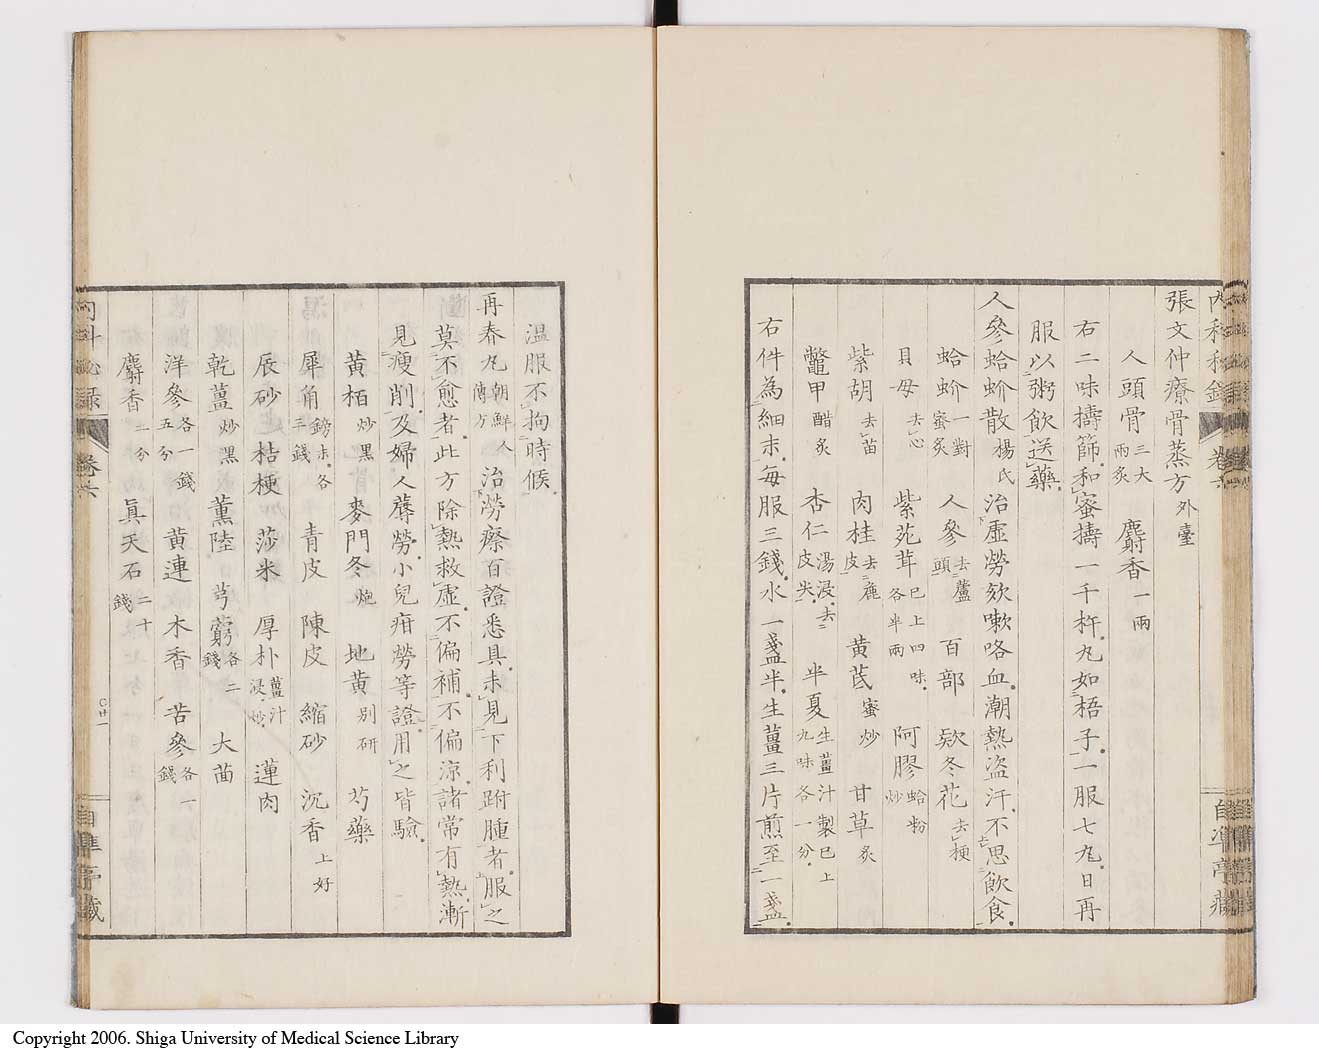 內科秘錄 卷六 自準亭藏
張文仲療骨蒸方外臺
人頭骨三大兩炙 麝香一兩
右二味擣篩和蜜擣一千杵丸如梧子一服七丸日再
服以粥飲送藥
人參蛤蚧散楊氏 治虛勞欬嗽咯血潮熱盜汗不思飲食
蛤蚧一對蜜炙 人參去蘆頭 百部 欵冬花去梗
貝母去心 紫菀茸已上四味各半兩 阿膠蛤粉炒
紫胡去苗 肉桂去麁皮 黃芪蜜炒 甘草炙
鼈甲醋炙 杏仁湯浸去皮尖 半夏生薑汁製已上九味各一分
右件為細末每服三錢水一盞半生薑三片煎至一盞
溫服不拘時候
再春丸朝鮮人傳方 治勞瘵百證悉具未見下利跗腫者服之
莫不愈者此方除熱救虛不偏補不偏涼諸常有熱漸
見瘦削及婦人蓐勞小兒疳勞等證用之皆驗
黃栢炒黑 麥門冬炮 地黃別研 芍藥
犀角鎊末各三錢 青皮 陳皮 縮砂 沉香上好
辰砂 桔梗 莎米 厚朴薑汁浸炒 蓮肉
乾薑炒黑 薰陸 芎藭各二錢 大茴
洋參各一錢五分 黃連 木香 苦參各一錢
麝香二分 眞天石二十錢
內科秘錄 卷六 〇廿一 自準亭藏
Copyright 2006. Shiga University of Medical Science Library